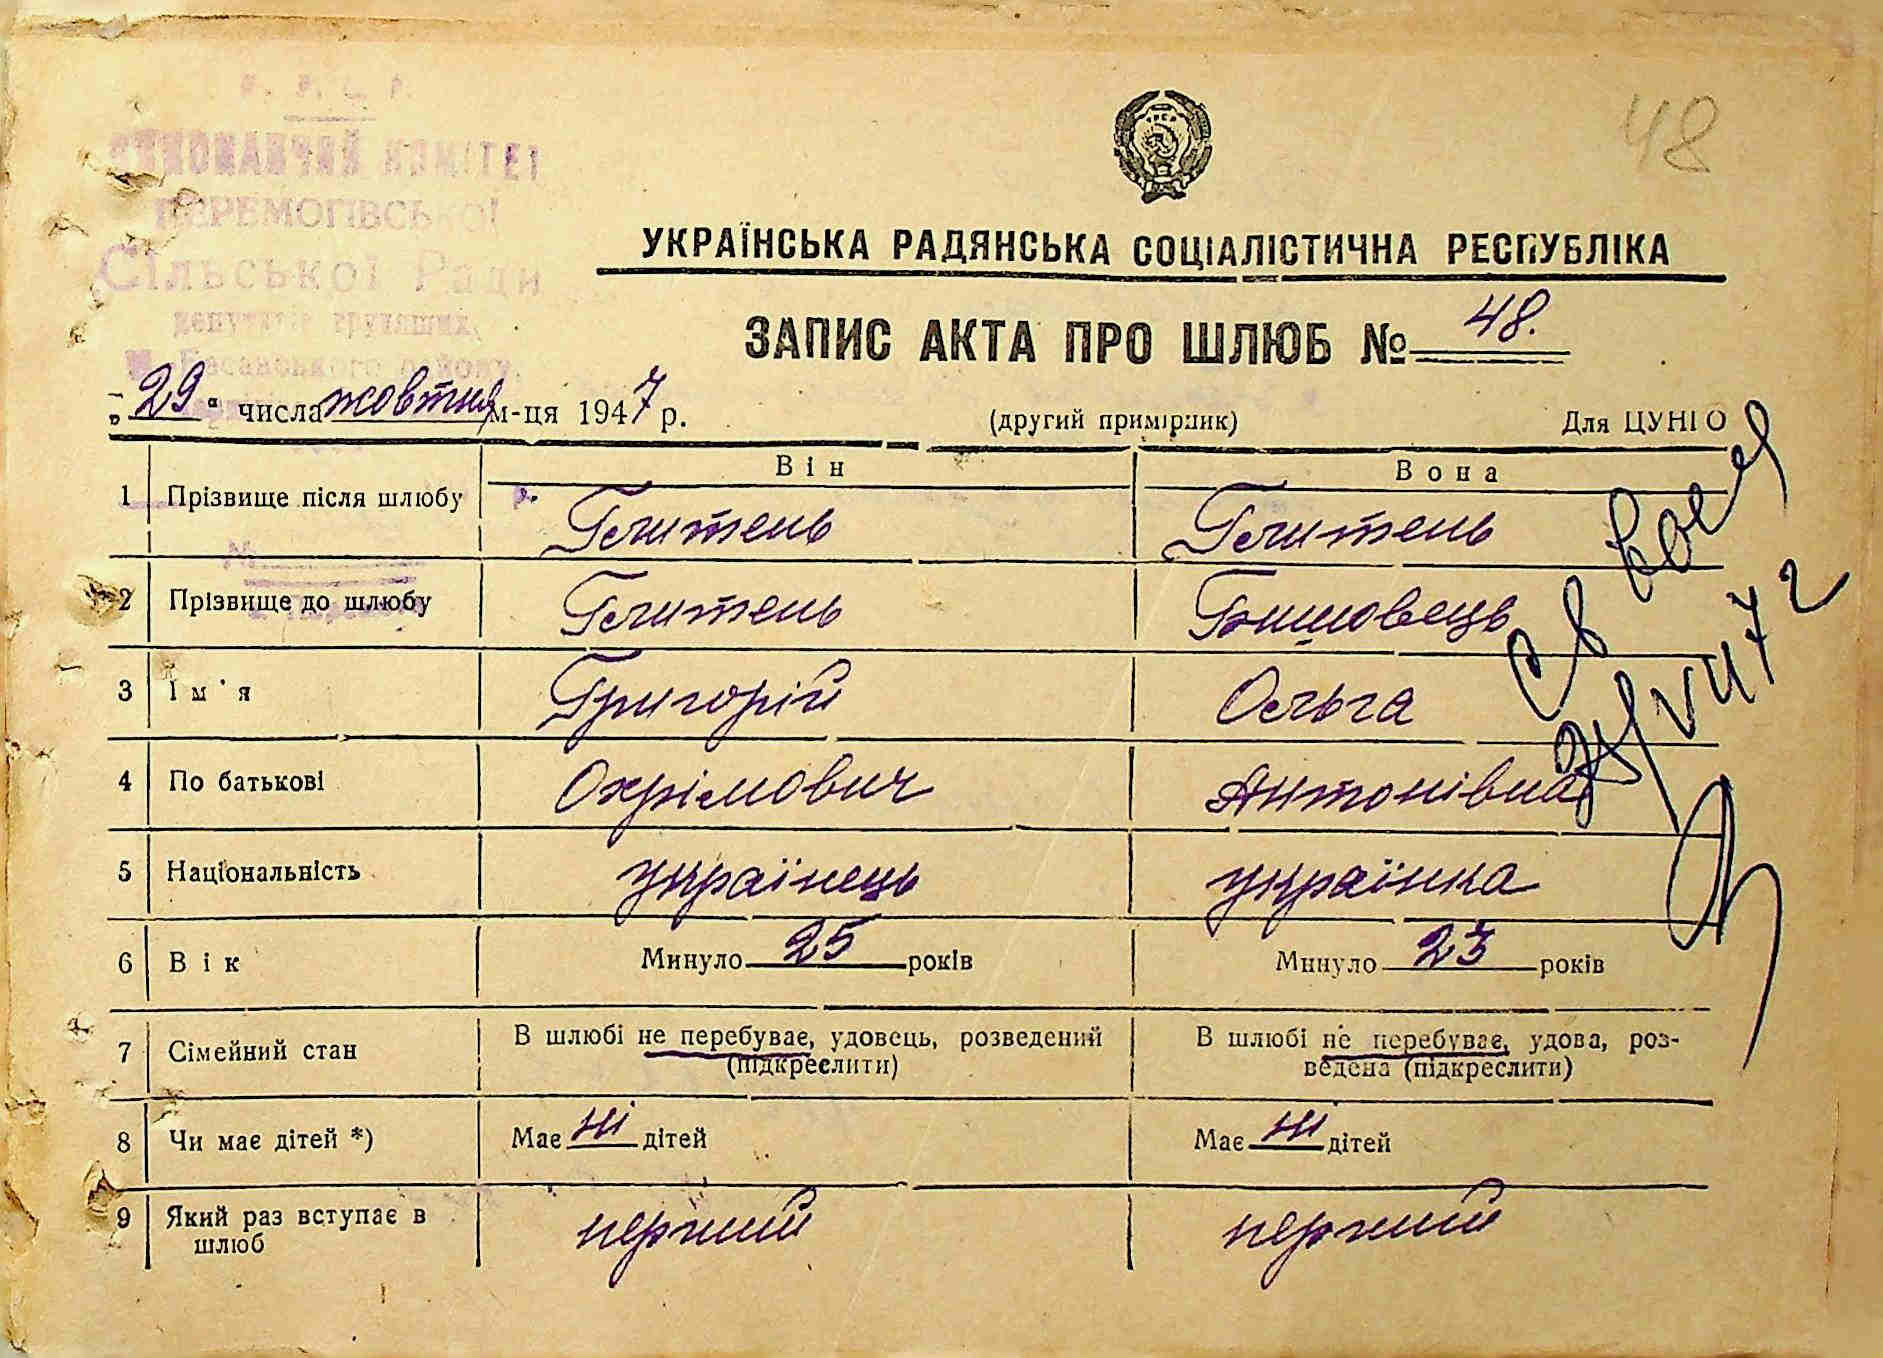 48
ВИКОНАВЧИЙ КОМІТЕТ
ПЕРЕМОГІВСЬКОЇ
Сільської Ради
депутатів трудящих
Басанського району
УКРАЇНСЬКА РАДЯНСЬКА СОЦІАЛІСТИЧНА РЕСПУБЛІКА
ЗАПИС АКТА ПРО ШЛЮБ № 48.
„29“ числа жовтня м-ця 1947 р. (другий примірник) Для ЦУНГО
Він Вона
1 Прізвище після шлюбу
2 Прізвище до шлюбу
3 Ім'я Григорій Ольга
4 По батькові Охрімович Антонівна
5 Національність українець українка
6 Вік Минуло 25 років Минуло 23 років
7 Сімейний стан В шлюбі не перебуває, удовець, розведений (підкреслити) В шлюбі не перебуває, удова, роз-
ведена (підкреслити)
8 Чи має дітей *) Має ні дітей Має ні дітей
9 Який раз вступає в шлюб перший перший